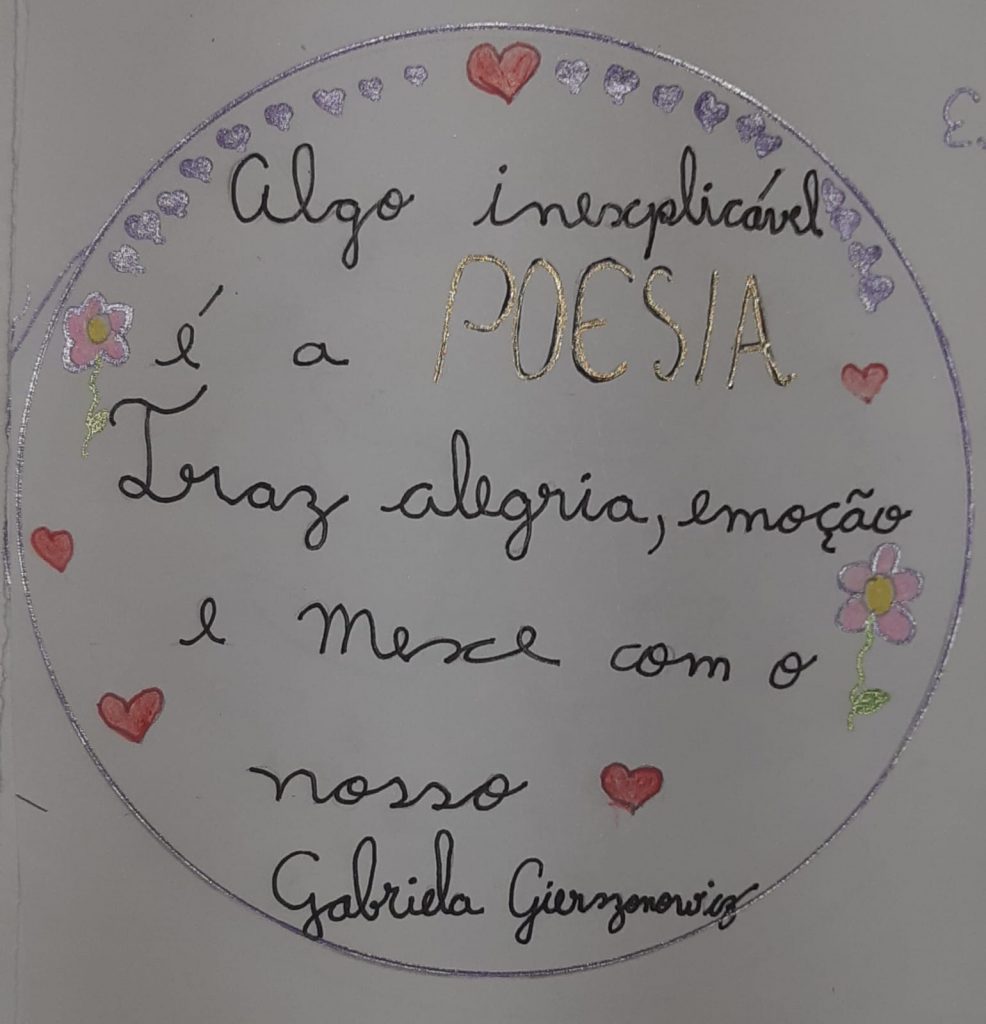 Algo inexplicável
é a POESIA
Traz alegria, emoção
e Mexe com o
nosso
Gabriela Gierszonowicz